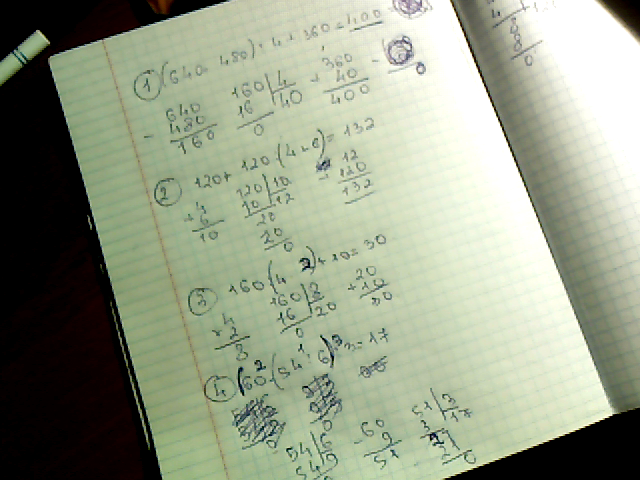 ① (640 - 480) : 4 + 360 = 400
640
- 480
160
160 | 4
16 | 40
0
360
+ 40
400
② 120 + 120 : (4 + 6) = 132
4
+ 6
10
120 | 10
10 | 12
20
20
0
12
+ 120
132
③ 160 : (4 · 2) + 10 = 30
4
2
8
160 | 8
16 | 20
0
20
+ 10
30
④ (60 - (54 : 6)) : 3 = 17
54 | 6
54 | 9
60
- 9
51
51 | 3
3 | 17
21
0